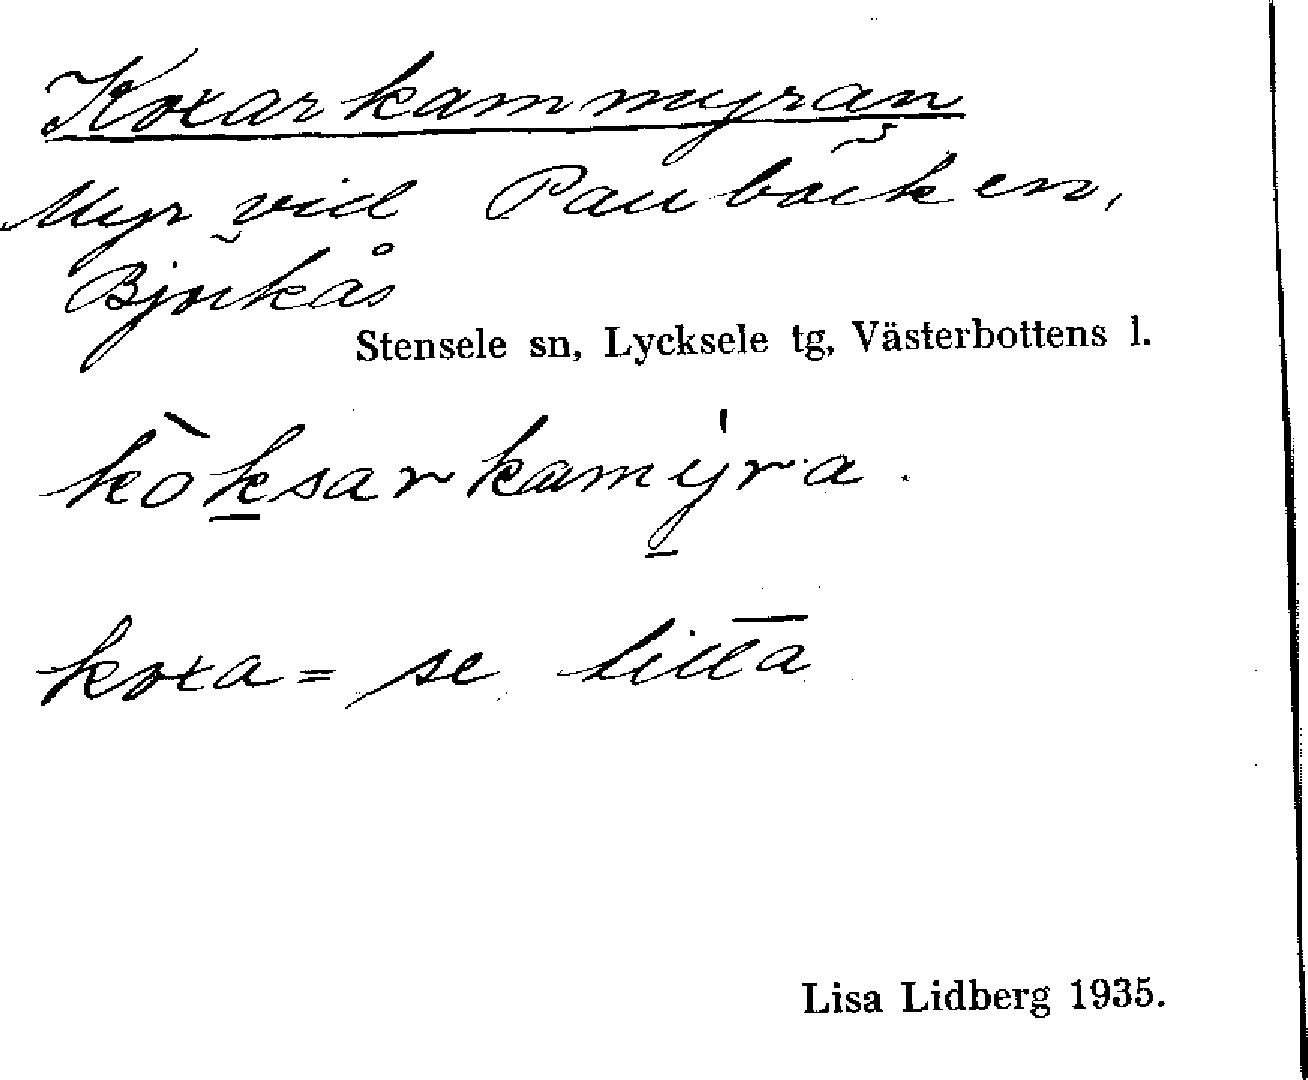 Koxarkammyran
Myr vid Paubäcken,
Björkås
Stensele sn, Lycksele tg, Västerbottens l.
kòksarkamýra.
koxa = se titta
Lisa Lidberg 1935.